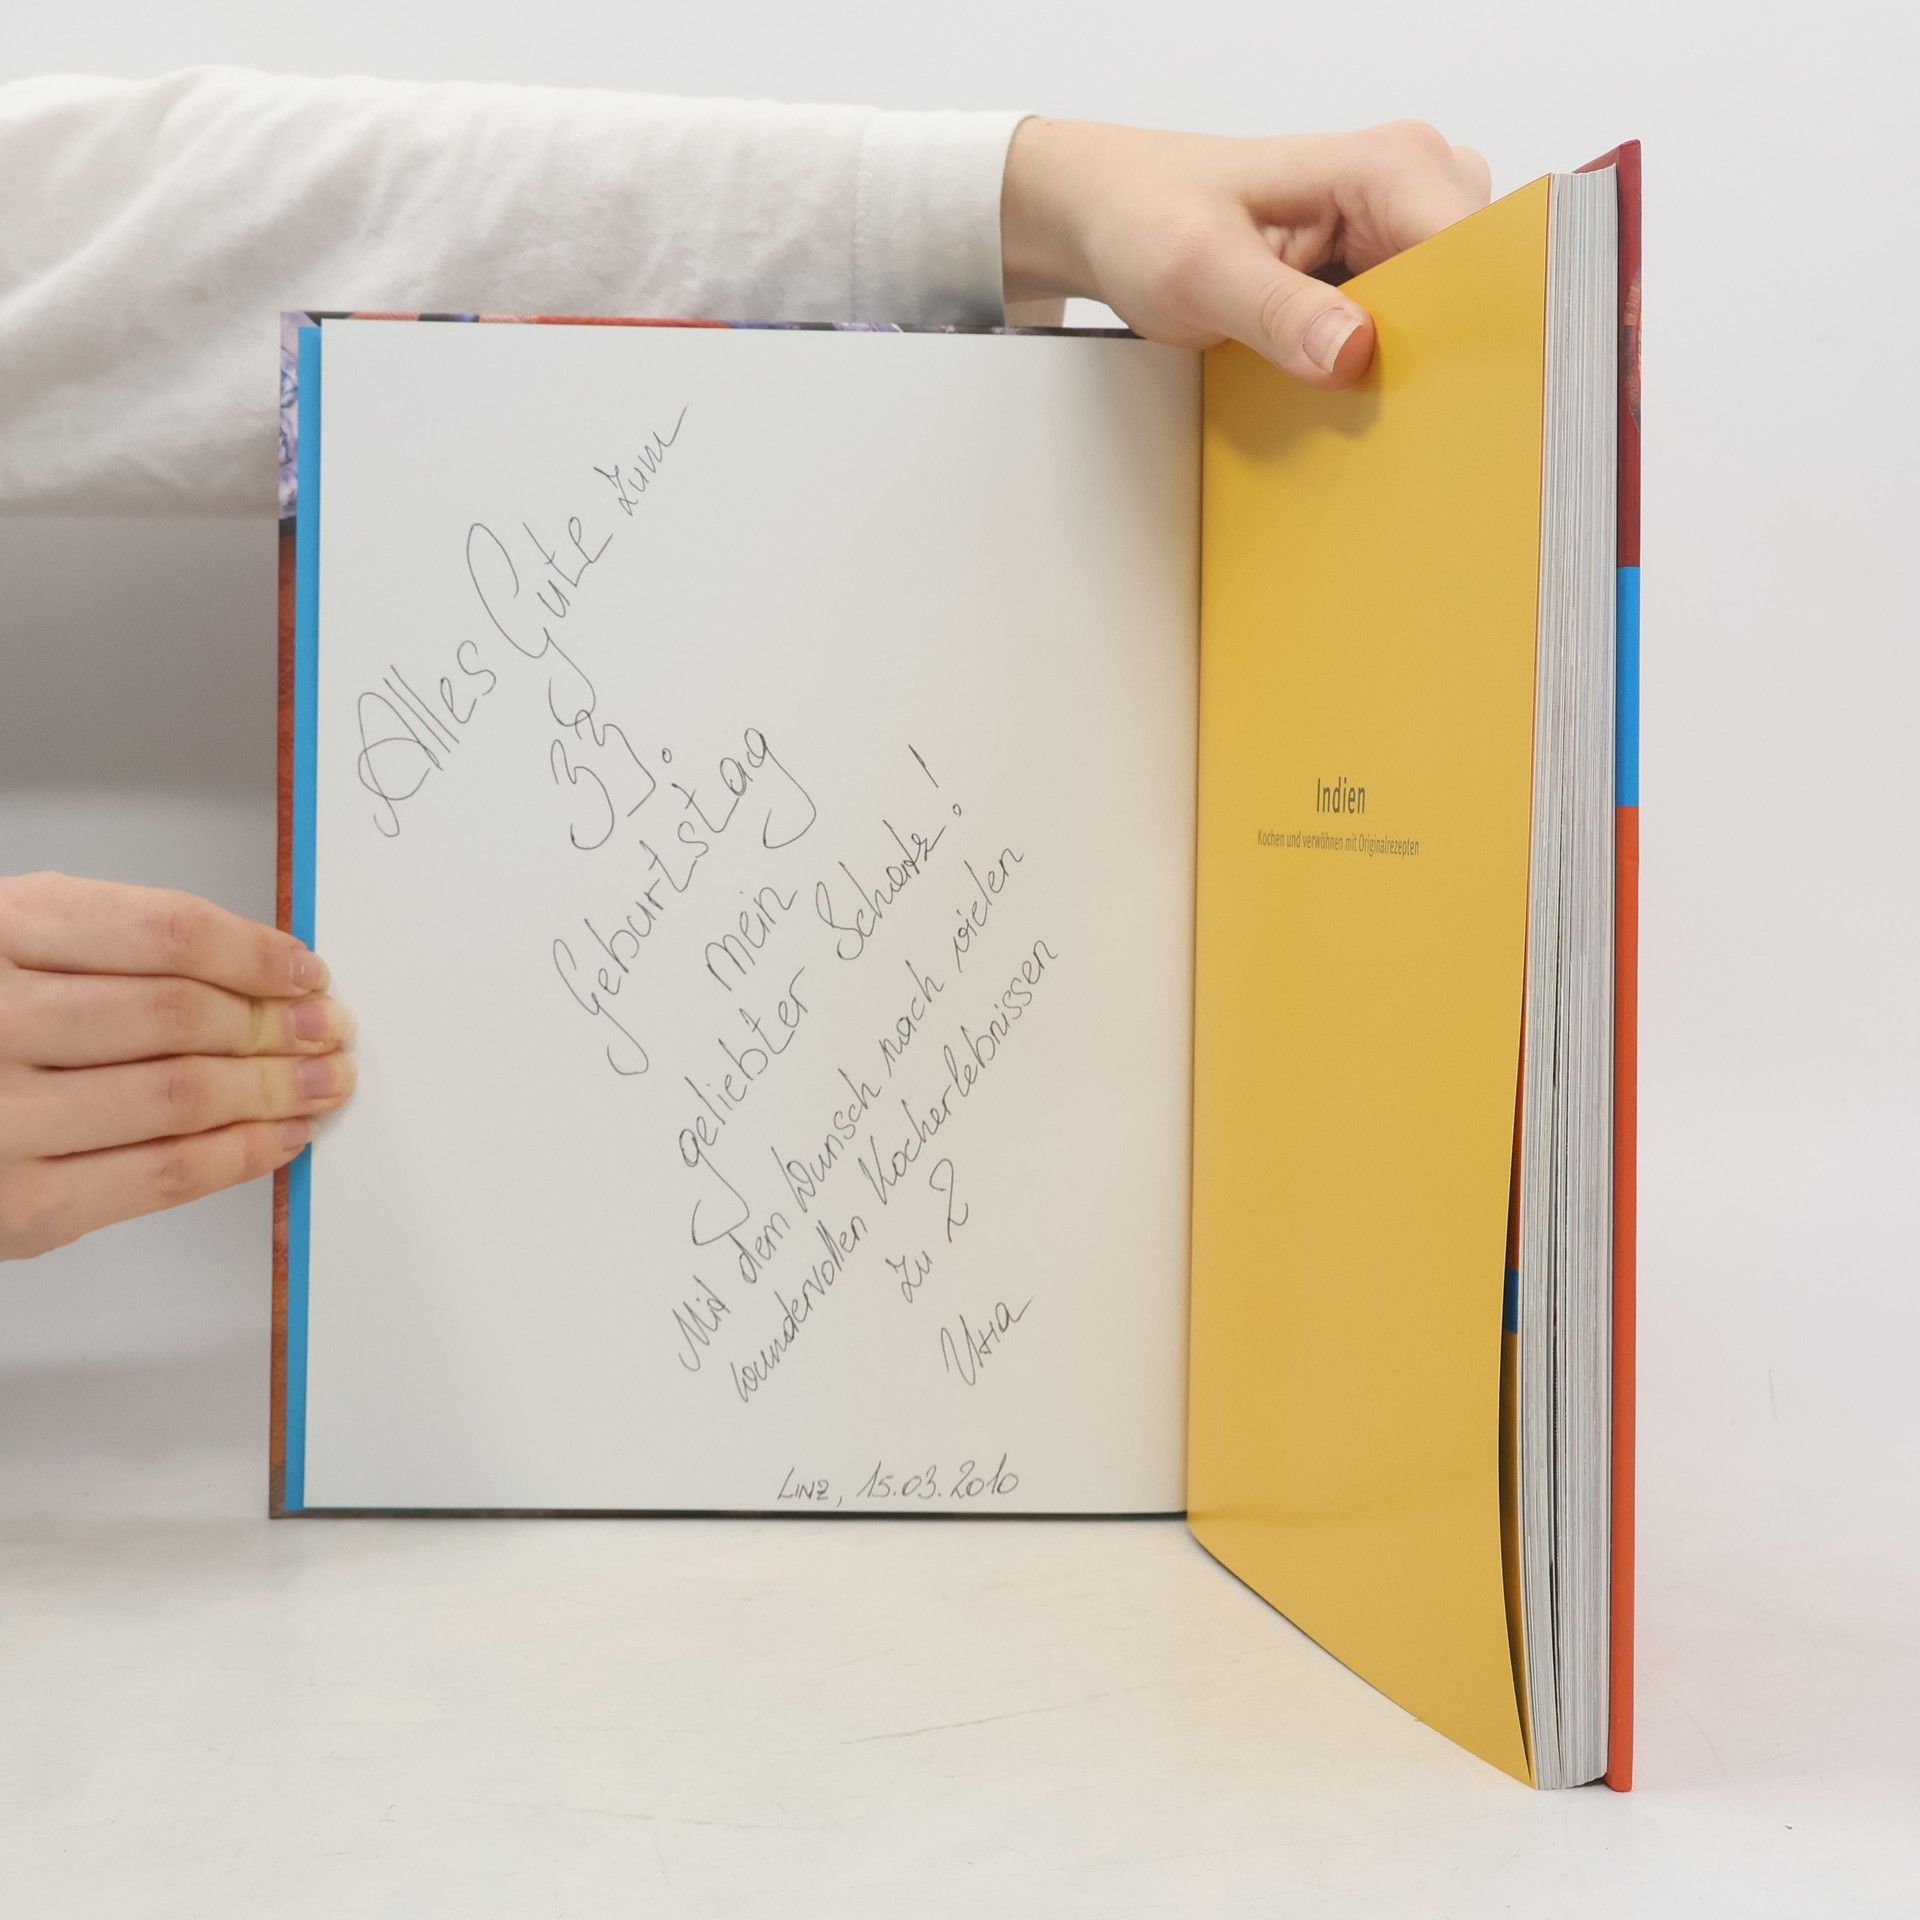 Alles Gute zum
33.
Geburtstag
mein
geliebter Schatz!
Mit dem Wunsch nach vielen
wundervollen Kocherlebnissen
zu 2
Utta
LINZ, 15.03.2010
Indien
Kochen und verwöhnen mit Originalrezepten